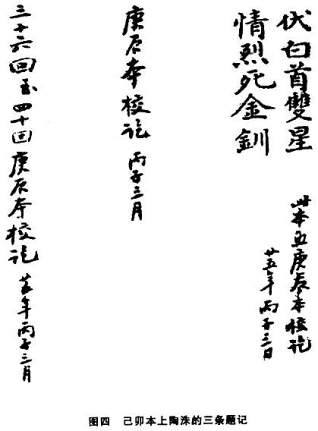 伏白首雙星
情烈死金釧
此本照庚辰本校訖
廿五年丙子三月
庚辰本校訖 丙子三月
三十六回至四十回庚辰本校訖 廿五年丙子三月
图四 己卯本上陶洙的三条题记